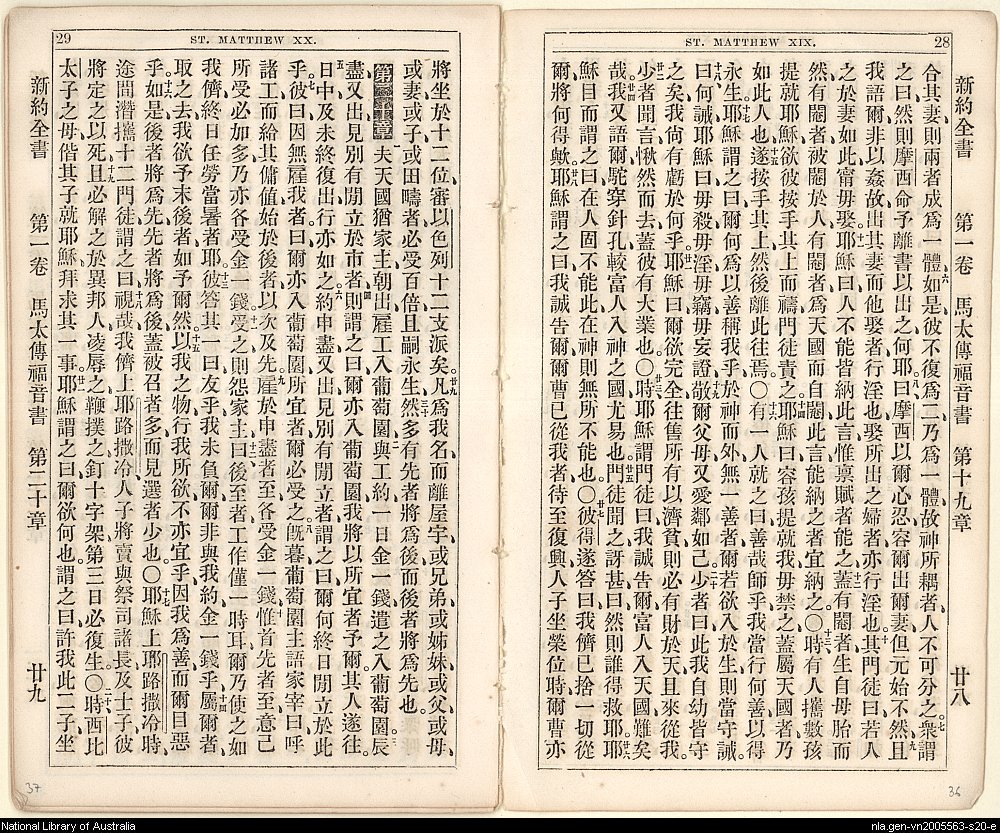 28
ST. MATTHEW XIX.
新約全書 第一卷 馬太傳福音書 第十九章 廿八
合其妻、則兩者成爲一體、六如是彼不復爲二、乃爲一體、故神所耦者、人不可分之。七衆謂
之曰、然則摩西命予離書以出之、何耶。八曰、摩西以爾心忍、容爾出爾妻、但元始不然。九且
我語爾、非以姦故出其妻、而他娶者、行淫也、娶所出之婦者、亦行淫也。十其門徒曰、若人
之於妻如此、寧毋娶。十一耶穌曰、人不能皆納此言、惟稟賦者能之。十二蓋有閹者、生自母胎而
然、有閹者、被閹於人、有閹者、爲天國而自閹、此言能納之者、宜納之。〇十三時有人攜數孩
提就耶穌、欲彼按手其上而禱、門徒責之。十四耶穌曰、容孩提就我、毋禁之、蓋屬天國者、乃
如此人也。十五遂按手其上、然後離此往焉。〇十六有一人就之曰、善哉師乎、我當行何善以得
永生。十七耶穌謂之曰、爾何爲以善稱我乎、於神而外、無一善者、爾若欲入於生、則當守誡。十八
曰、何誡、耶穌曰、毋殺、毋淫、毋竊、毋妄證、十九敬爾父母、又愛鄰如己。二十少者曰、此我自幼皆守
之矣、我尙有虧於何乎。廿一耶穌曰、爾欲完全、往售所有以濟貧、則必有財於天、且來從我。
廿二少者聞言、愀然而去、蓋彼有大業也。〇廿三時耶穌謂門徒曰、我誠告爾、富人入天國難矣
哉。廿四我又語爾、駝穿針孔、較富人入神之國尤易也。廿五門徒聞之、訝甚曰、然則誰得救耶。廿六耶
穌目而謂之曰、在人固不能此、在神則無所不能也。〇廿七彼得遂答曰、我儕已捨一切從
爾、將何得歟。廿八耶穌謂之曰、我誠告爾、爾曹已從我者、待至復興、人子坐榮位時、爾曹亦
36
29
ST. MATTHEW XX.
新約全書 第一卷 馬太傳福音書 第二十章 廿九
將坐於十二位、審以色列十二支派矣。廿九凡爲我名而離屋宇、或兄弟、或姊妹、或父、或母、
或妻、或子、或田疇者、必受百倍、且嗣永生。三十然多有先者將爲後、而後者將爲先也。
第二十章 一夫天國猶家主、朝出雇工入葡萄園、二與工約一日金一錢、遣之入葡萄園。三辰
盡又出、見別有閒立於市者、四則謂之曰、爾亦入葡萄園、我將以所宜者予爾、其人遂往。
五日中及未終、復出行亦如之。六約申盡又出、見別有閒立者、謂之曰、爾何終日閒立於此
乎。七彼曰、因無雇我者、曰、爾亦入葡萄園、所宜者爾必受之。八旣暮、葡萄園主語家宰曰、呼
諸工而給其傭值、始於後者、以次及先。九雇於申盡者至、各受金一錢。十惟首先者至、意己
所受必加多、乃亦各受金一錢。十一受之則怨家主曰、十二後至者工作僅一時耳、爾乃使之如
我儕終日任勞當暑者耶。十三彼答其一曰、友乎、我未負爾、爾非與我約金一錢乎。十四屬爾者、
取之去、我欲予末後者如予爾然。十五以我之物、行我所欲、不亦宜乎、因我爲善而爾目惡
乎。十六如是後者將爲先、先者將爲後、蓋被召者多、而見選者少也。〇十七耶穌上耶路撒冷時、
途間潛攜十二門徒、謂之曰、十八視哉、我儕上耶路撒冷、人子將賣與祭司諸長及士子、彼
將定之以死、十九且必解之於異邦人、凌辱之、鞭撲之、釘十字架、第三日必復生。〇二十時西比
太子之母偕其子就耶穌、拜求其一事。廿一耶穌謂之曰、爾欲何也、謂之曰、許我此二子、坐
37
National Library of Australia
nla.gen-vn2005563-s20-e